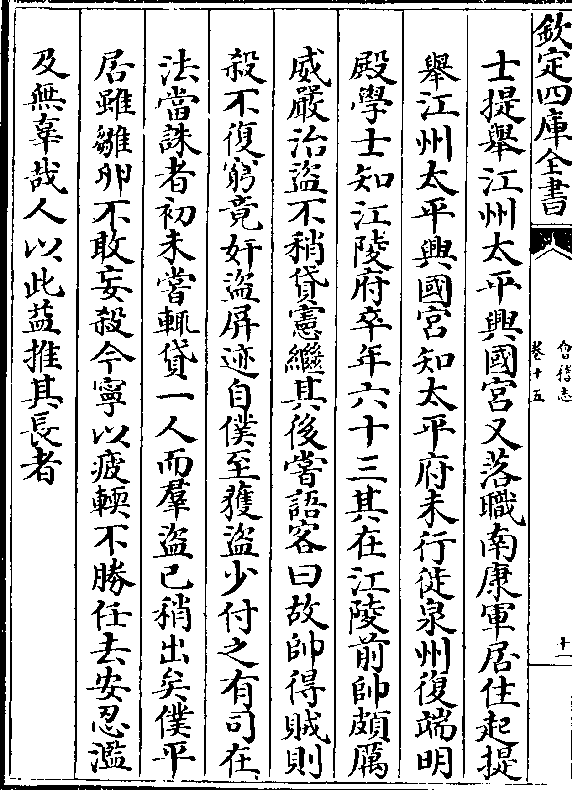 欽定四庫全書
會稽志
卷十五
十一
士提舉江州太平興國宮又落職南康軍居住起提
舉江州太平興國宮知太平府未行徙泉州復端明
殿學士知江陵府卒年六十三其在江陵前帥頗厲
威嚴治盜不稍貸憲繼其後嘗語客曰故帥得賊則
殺不復窮竟奸盜屏迹自僕至獲盜少付之有司在
法當誅者初未嘗輒貸一人而羣盜已稍出矣僕平
居雖雛卵不敢妄殺今寧以疲輭不勝任去安忍濫
及無辜哉人以此益推其長者